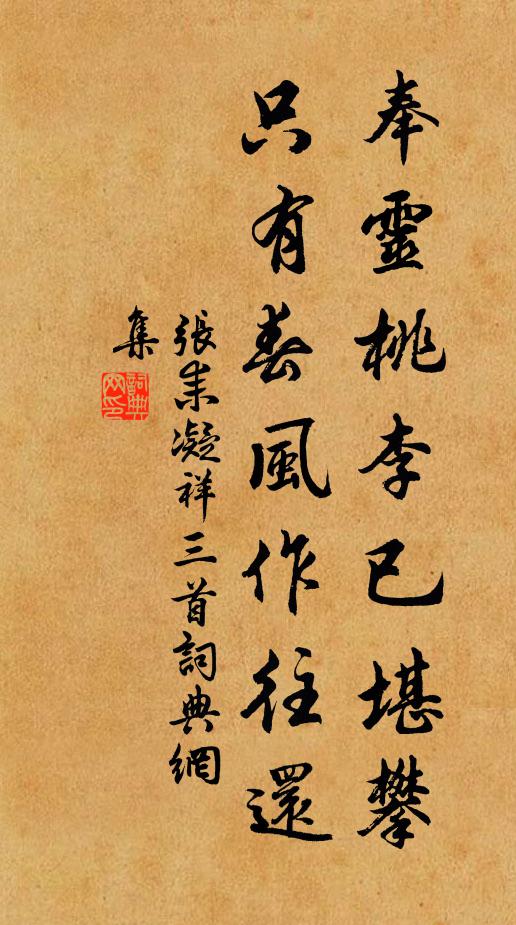 奉靈桃李已堪攀
只有春風作往還
張耒凝祥三首詞典網
集
詞典網印